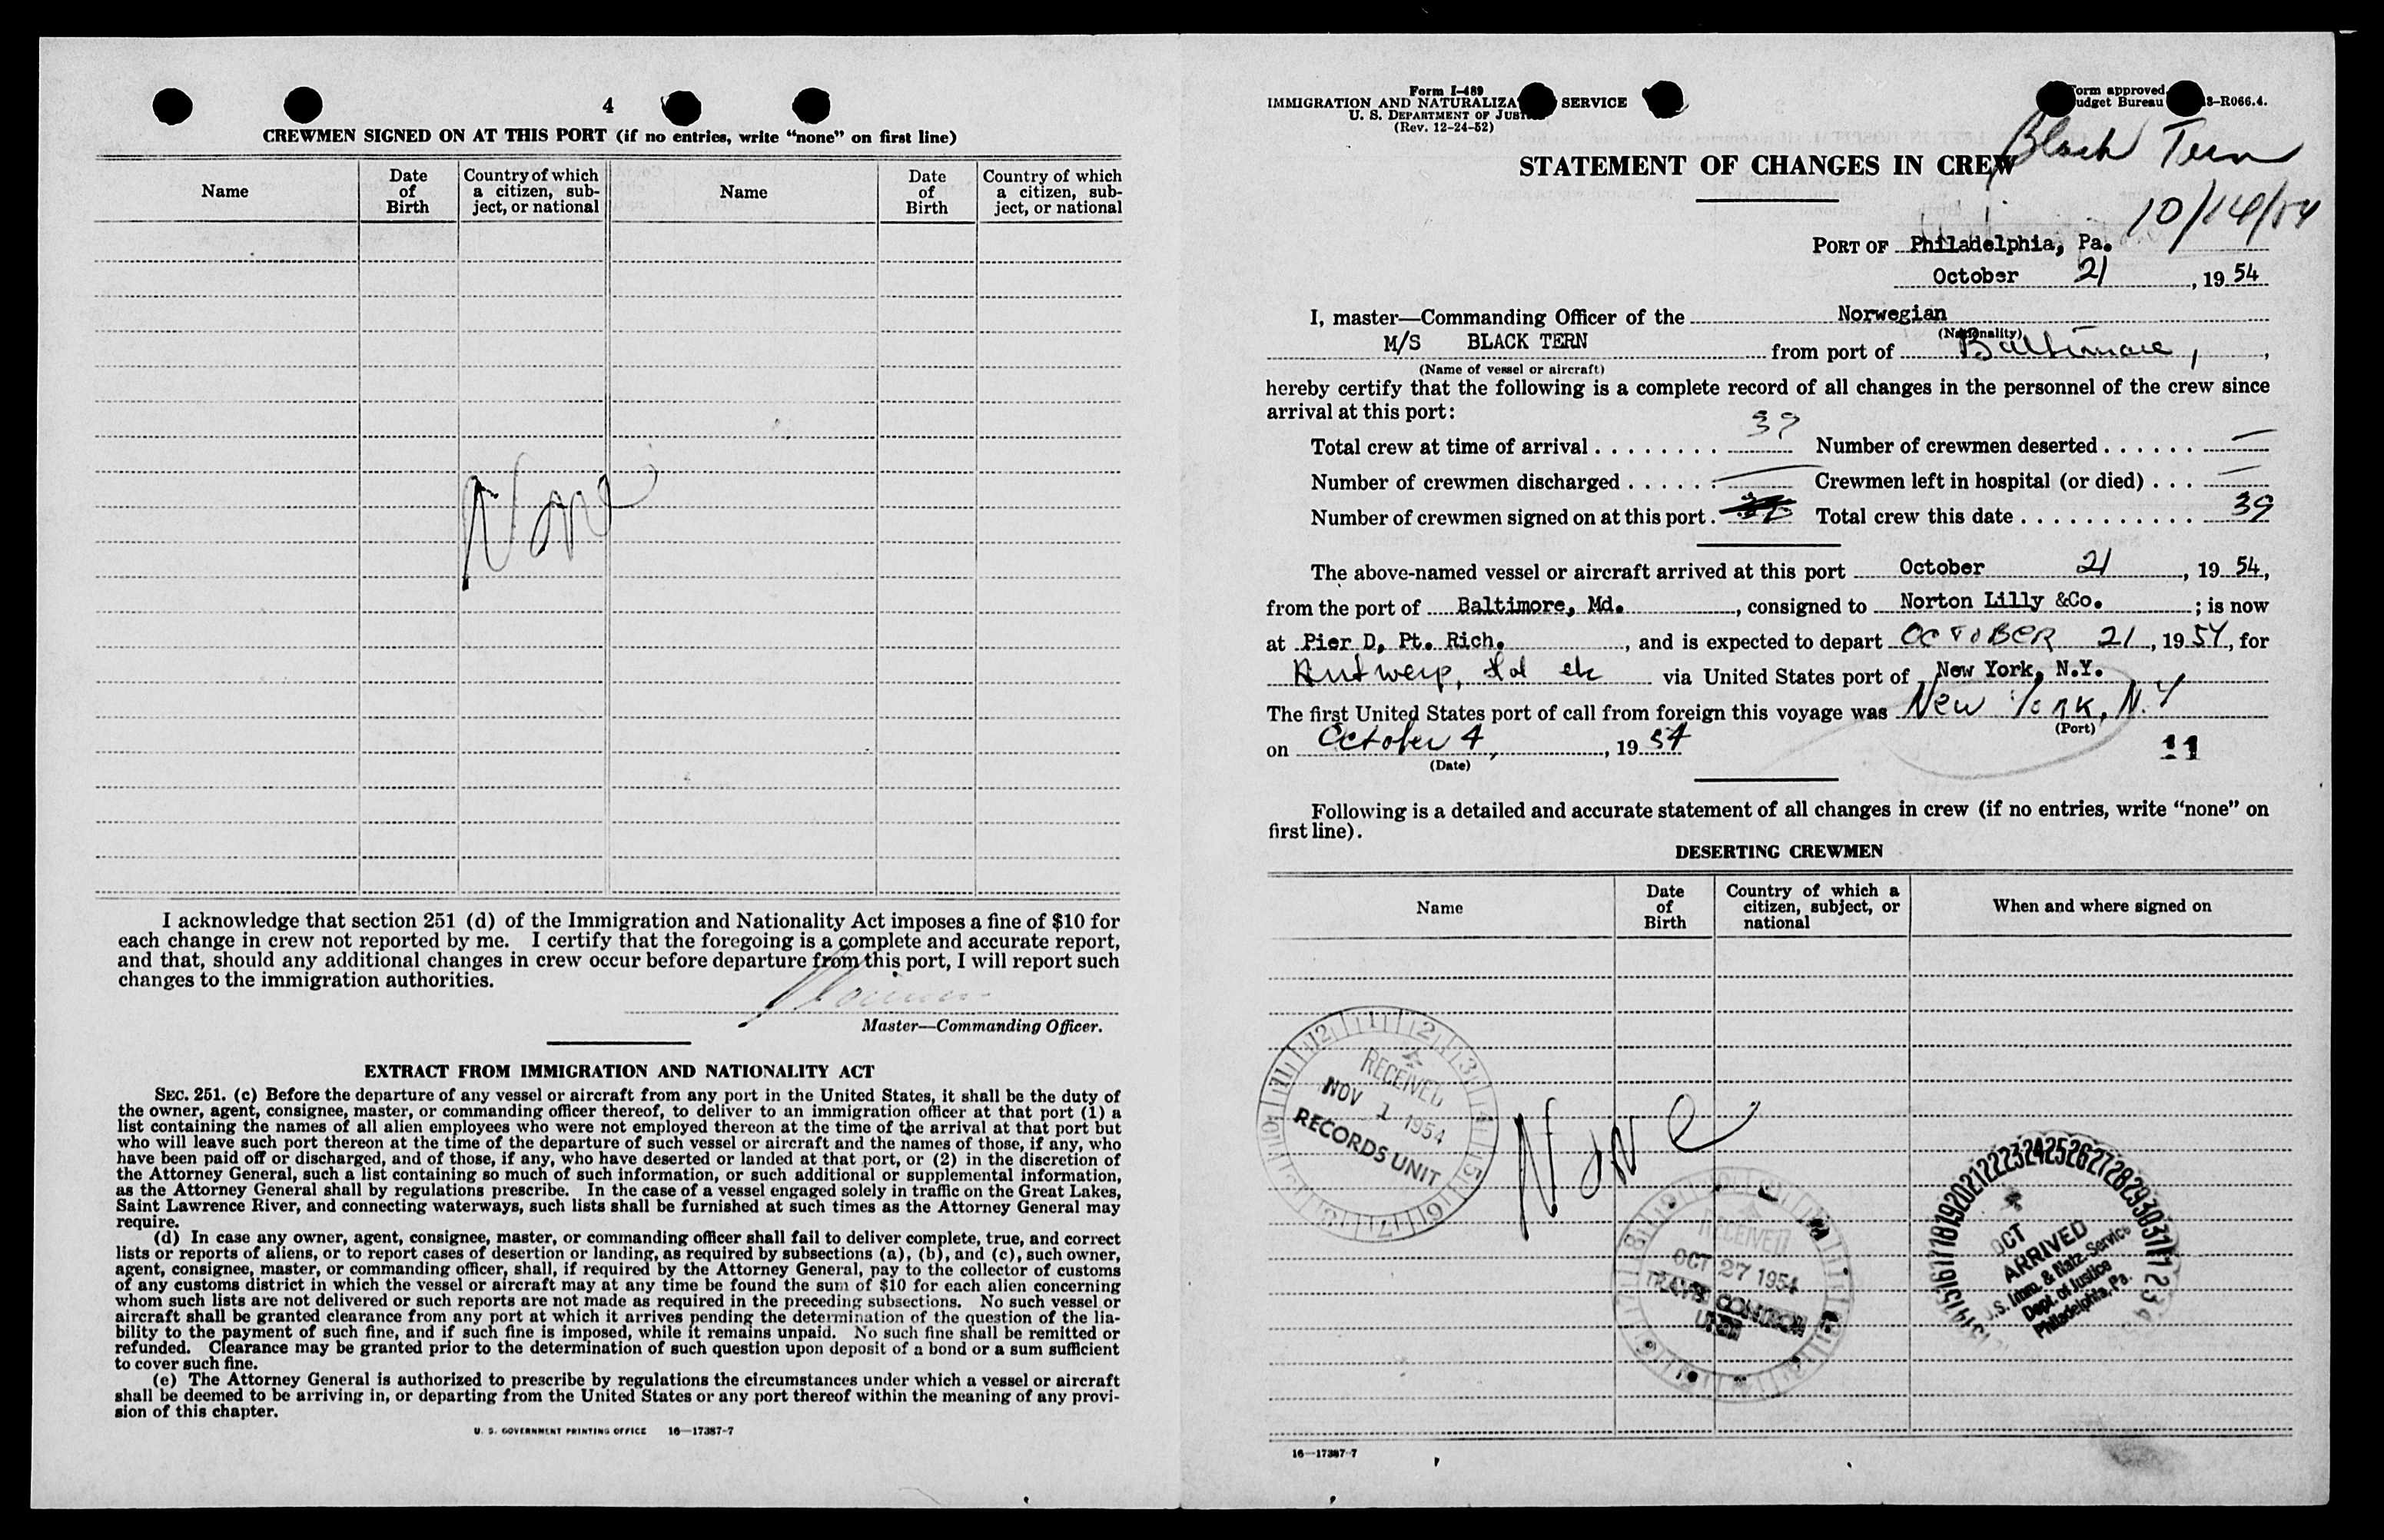 4
CREWMEN SIGNED ON AT THIS PORT (if no entries, write "none" on first line)
Name
Date of Birth
Country of which a citizen, sub-ject, or national
Name
Date of Birth
Country of which a citizen, sub-ject, or national
None
I acknowledge that section 251 (d) of the Immigration and Nationality Act imposes a fine of $10 for
each change in crew not reported by me. I certify that the foregoing is a complete and accurate report,
and that, should any additional changes in crew occur before departure from this port, I will report such
changes to the immigration authorities.
Master—Commanding Officer.
EXTRACT FROM IMMIGRATION AND NATIONALITY ACT
SEC. 251. (c) Before the departure of any vessel or aircraft from any port in the United States, it shall be the duty of
the owner, agent, consignee, master, or commanding officer thereof, to deliver to an immigration officer at that port (1) a
list containing the names of all alien employees who were not employed thereon at the time of the arrival at that port but
who will leave such port thereon at the time of the departure of such vessel or aircraft and the names of those, if any, who
have been paid off or discharged, and of those, if any, who have deserted or landed at that port, or (2) in the discretion of
the Attorney General, such a list containing so much of such information, or such additional or supplemental information,
as the Attorney General shall by regulations prescribe. In the case of a vessel engaged solely in traffic on the Great Lakes,
Saint Lawrence River, and connecting waterways, such lists shall be furnished at such times as the Attorney General may
require.
(d) In case any owner, agent, consignee, master, or commanding officer shall fail to deliver complete, true, and correct
lists or reports of aliens, or to report cases of desertion or landing, as required by subsections (a), (b), and (c), such owner,
agent, consignee, master, or commanding officer, shall, if required by the Attorney General, pay to the collector of customs
of any customs district in which the vessel or aircraft may at any time be found the sum of $10 for each alien concerning
whom such lists are not delivered or such reports are not made as required in the preceding subsections. No such vessel or
aircraft shall be granted clearance from any port at which it arrives pending the determination of the question of the lia-
bility to the payment of such fine, and if such fine is imposed, while it remains unpaid. No such fine shall be remitted or
refunded. Clearance may be granted prior to the determination of such question upon deposit of a bond or a sum sufficient
to cover such fine.
(e) The Attorney General is authorized to prescribe by regulations the circumstances under which a vessel or aircraft
shall be deemed to be arriving in, or departing from the United States or any port thereof within the meaning of any provi-
sion of this chapter.
U. S. GOVERNMENT PRINTING OFFICE 16—17387-7
Form I-489
IMMIGRATION AND NATURALIZA SERVICE
U. S. DEPARTMENT OF JUST
(Rev. 12-24-52)
orm approved.
udget Bureau 3-R066.4.
Black Tern
10/14/54
STATEMENT OF CHANGES IN CREW
PORT OF Philadelphia, Pa.
October 21, 19 54
I, master—Commanding Officer of the Norwegian
(Nationality)
M/S BLACK TERN from port of Baltimore,
(Name of vessel or aircraft)
hereby certify that the following is a complete record of all changes in the personnel of the crew since
arrival at this port:
Total crew at time of arrival . . . . . . . . 39 Number of crewmen deserted . . . . . . —
Number of crewmen discharged . . . . . . — Crewmen left in hospital (or died) . . . —
Number of crewmen signed on at this port . Total crew this date . . . . . . . . . . . 39
The above-named vessel or aircraft arrived at this port October 21, 19 54,
from the port of Baltimore, Md., consigned to Norton Lilly &Co. ; is now
at Pier D, Pt. Rich., and is expected to depart OCTOBER 21, 19 54, for
Antwerp, via United States port of New York, N.Y.
The first United States port of call from foreign this voyage was New York, N.Y
(Port)
on October 4, , 19 54
(Date)
11
Following is a detailed and accurate statement of all changes in crew (if no entries, write "none" on
first line).
DESERTING CREWMEN
Name
Date of Birth
Country of which a citizen, subject, or national
When and where signed on
None
RECEIVED
NOV 1 1954
RECORDS UNIT
RECEIVED
OCT 27 1954
TRAVEL CONTROL
UNIT
OCT
ARRIVED
U.S. Imm. & Natz. Service
Dept. of Justice
Philadelphia, Pa.
16—17387-7